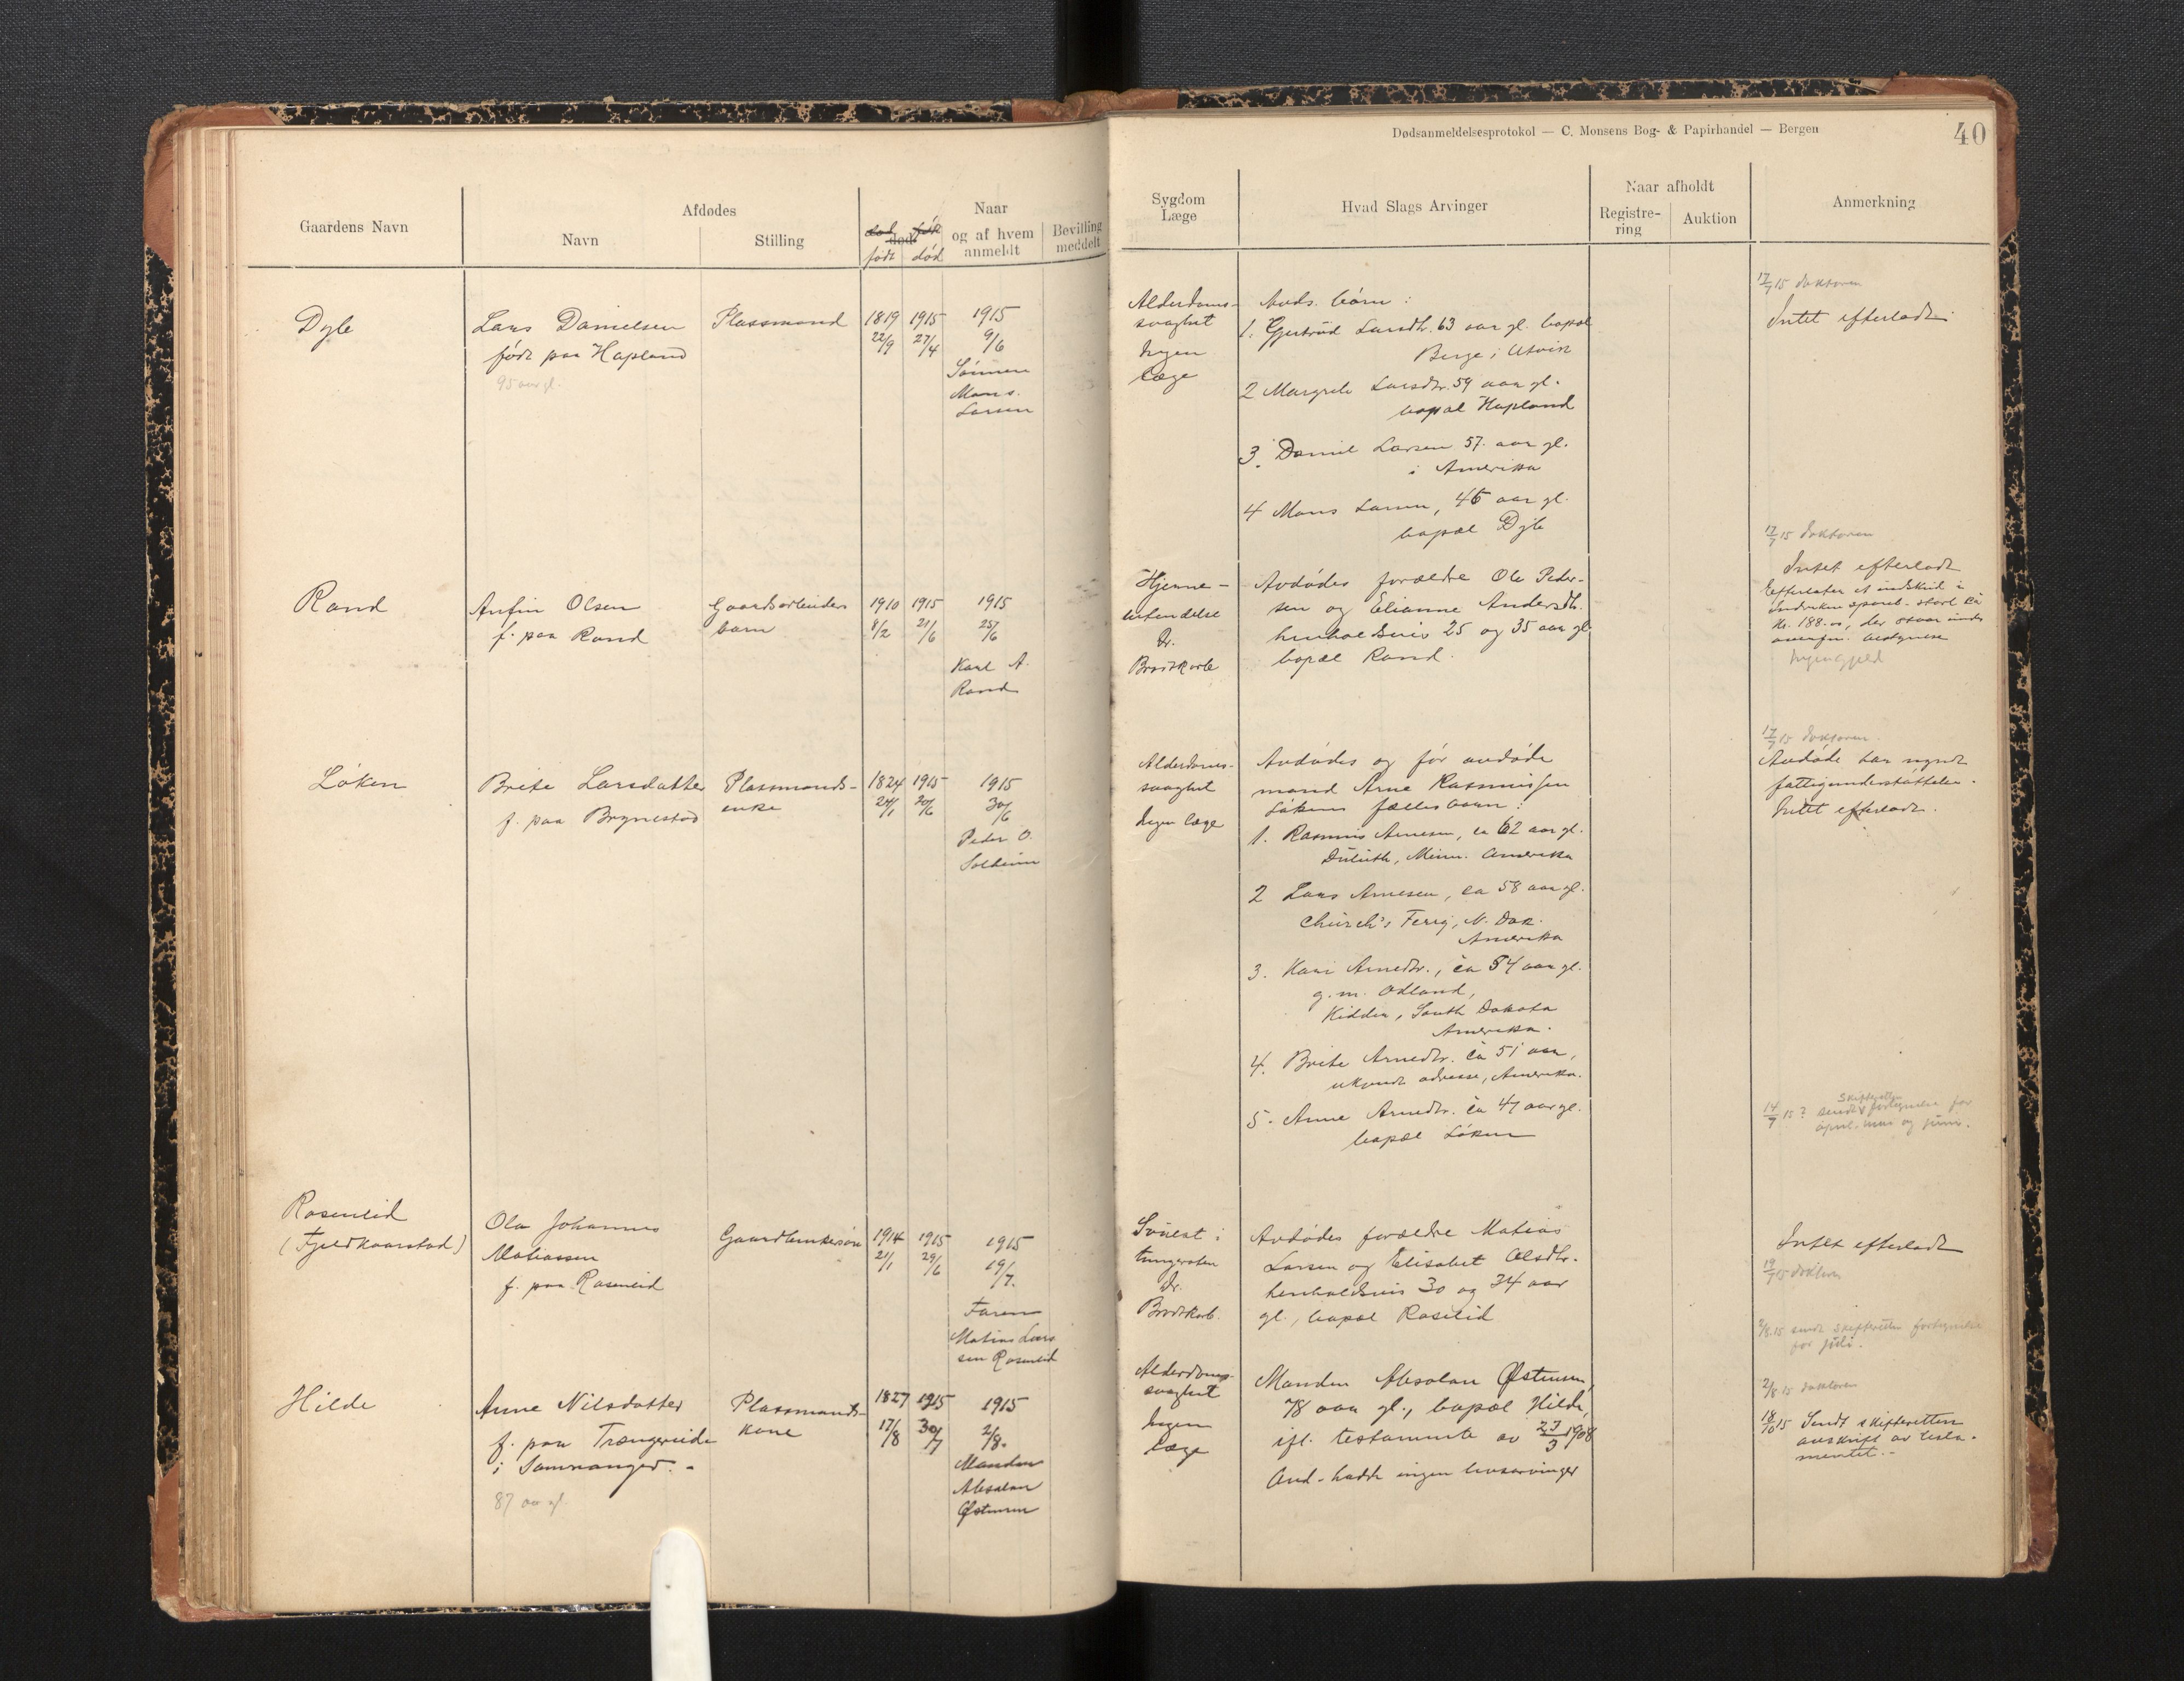 Dødsanmeldelsesprotokol — C. Monsens Bog- & Papirhandel — Bergen
40
Gaardens Navn
Afdødes
Navn
Stilling
født
død
Naar
og af hvem
anmeldt
Bevilling
meddelt
Sygdom
Læge
Hvad Slags Arvinger
Naar afholdt
Registre-
ring
Auktion
Anmerkning
Dyle
Lars Danielsen
født paa Hapland
95 aar gl.
Plassmand
1819 22/9
1915 27/4
1915
9/6
Sønnen
Mons
Larsen
Alderdoms-
svaghet
Ingen
læge
Avds. børn:
1. Gjertrud Larsdtr. 63 aar gl. bopæl
Berge i Utvik
2 Margrete Larsdtr. 59 aar gl.
bopæl Hapland
3. Daniel Larsen 57 aar gl.
i Amerika
4 Mons Larsen, 46 aar gl.
bopæl Dyle
17/7 15 doktoren
Intet efterladt
Rand
Anfin Olsen
f. paa Rand
Gaardsarbeiders
barn
1910 8/2
1915 21/6
1915
25/6
Karl A.
Rand
Hjerne-
betændelse
Dr.
Brodtkorb
Avdødes forældre Ole Peder-
sen og Elianne Andersdtr.
henholdsvis 25 og 35 aar gl
bopæl Rand.
17/7 15 doktoren
Intet efterladt
Efterlater et indskud i
Indviken spareb. stort ca
kr. 188.00, der staar under
overfor. bestyrelse
Ingen gjeld
Løken
Brite Larsdatter
f. paa Brynestad
Plassmands-
enke
1824 24/1
1915 20/6
1915
30/6
Peder O.
Solheim
Alderdoms-
svaghet
Ingen læge
Avdødes og før avdøde
mand Arne Rasmussen
Løkens fællesbørn:
1. Rasmus Arnesen, ca 62 aar gl.
Duluth, Minn. Amerika
2 Lars Arnesen, ca 58 aar gl.
Church's Ferry, N. Dak.
Amerika
3. Kari Arnedtr., ca 54 aar gl.
g. m. Odland,
Kidder, South Dakota
Amerika.
4. Brite Arnedtr. ca 51 aar,
ukjendt adresse, Amerika.
5. Anne Arnedtr. ca 47 aar gl.
bopæl Løken
17/7 15 doktoren
Avdøde har nydt
fattigunderstøttelse.
Intet efterladt.
14/7 15? sendt skifteretten fortegnelse for
april, mai og juni.
Roseneid
(Fjeldkaarstad)
Ola Johannes
Matiassen
f. paa Roseneid
Gaardbrukersøn
1914 21/1
1915 29/6
1915
19/7.
Faren
Matias Lars
sen Roseneid
Svulst i
tungeroten
Dr.
Brodtkorb.
Avdødes forældre Matias
Larsen og Elisabet Olsdtr.
henholdsvis 30 og 34 aar
gl., bopæl Roseid
Intet efterladt
19/7 15 doktoren
2/8.15 sendt skifteretten fortegnelse
for juli.
Hilde
Anne Nilsdatter
f. paa Trængereide
i Samnanger. -
87 aar gl.
Plassmands-
kone
1827 17/8
1915 30/7
1915
2/8.
Manden
Absalon
Østensen
Alderdoms-
svaghet
Ingen
læge
Manden Absalon Østensen,
78 aar gl., bopæl Hilde,
ifl. testamente av 27/3 1908
Avd. hadde ingen livsarvinger
2/8 15 doktoren
18/10 15 Sendt skifteretten
avskrift av testa-
mentet. -